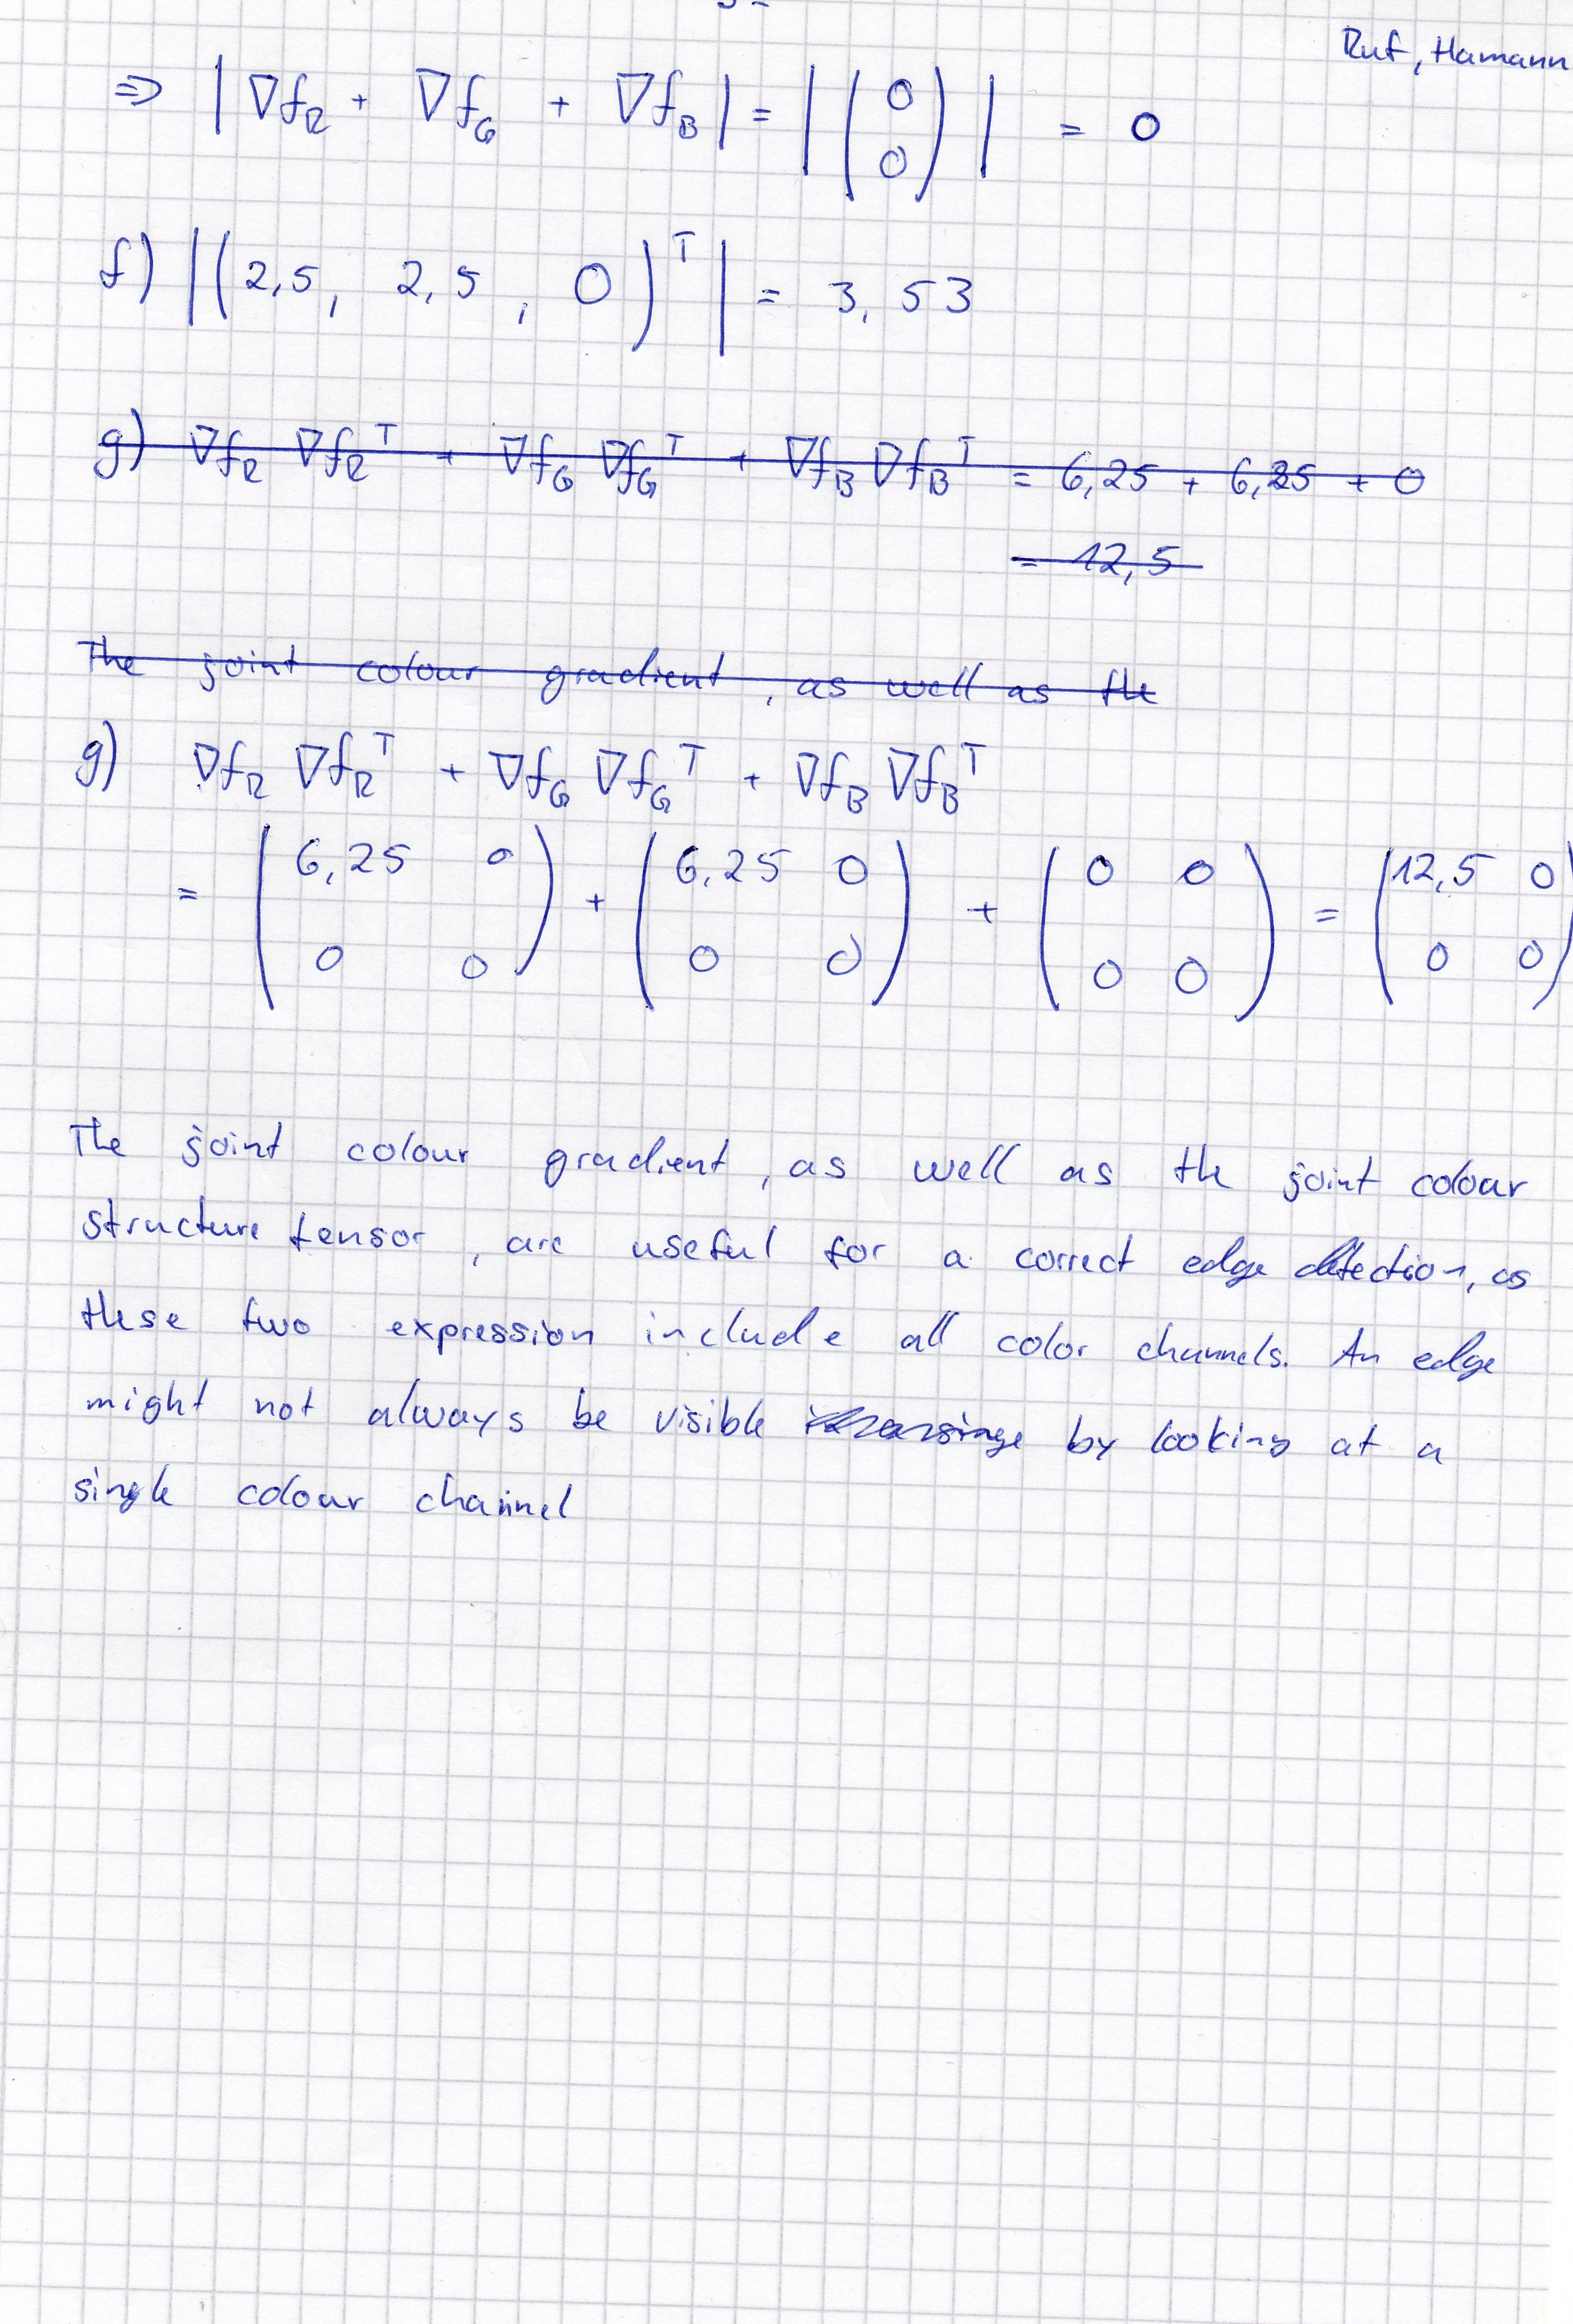 Ruf, Hamann
⇒ | ∇f_R + ∇f_G + ∇f_B | = | (0 0) | = 0
f) | (2,5, 2,5, 0)^T | = 3,53
g) ∇f_R ∇f_R^T + ∇f_G ∇f_G^T + ∇f_B ∇f_B^T = 6,25 + 6,25 + 0
= 12,5
The joint colour gradient, as well as the
g) ∇f_R ∇f_R^T + ∇f_G ∇f_G^T + ∇f_B ∇f_B^T
= (6,25 0 0 0) + (6,25 0 0 0) + (0 0 0 0) = (12,5 0 0 0)
The joint colour gradient, as well as the joint colour
structure tensor, are useful for a correct edge detection, as
these two expression include all color channels. An edge
might not always be visible by looking at a
single colour channel